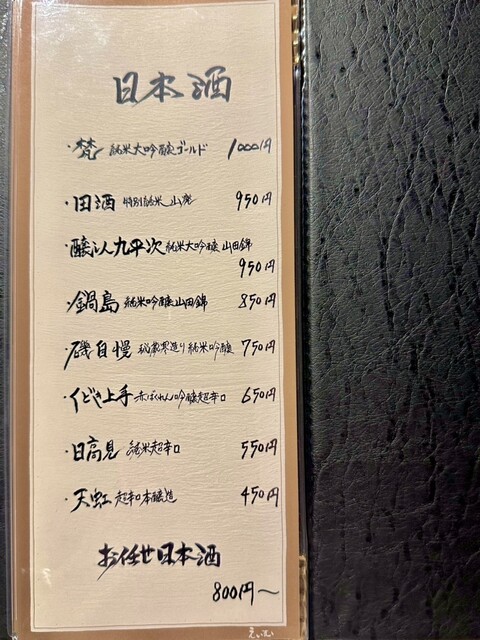 日本酒
・梵 純米大吟醸ゴールド 1000円
・田酒 特別純米 山廃 950円
・醸し人九平次 純米大吟醸 山田錦
950円
・鍋島 純米吟醸山田錦 850円
・磯自慢 秘蔵寒造り純米吟醸 750円
・くどき上手 赤ばくれん吟醸超辛口 650円
・日高見 純米超辛口 550円
・天虹 超辛口本醸造 450円
お任せ日本酒
800円〜